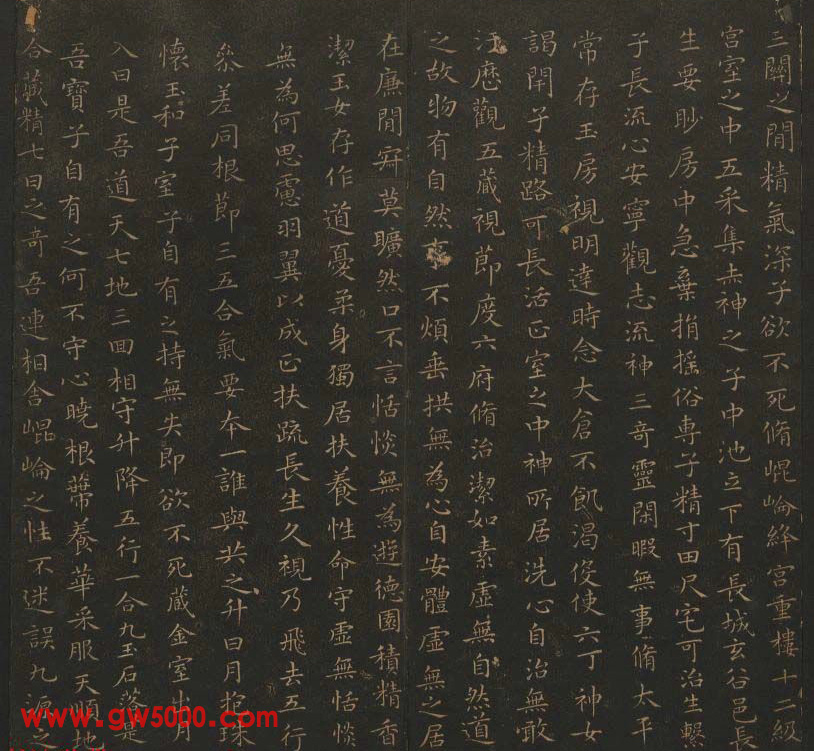 三關之間精氣深子欲不死脩崐崘絳宮重樓十二級
宮室之中五采集赤神之子中池立下有長城玄谷邑長
生要眇房中急棄捐搖俗專子精寸田尺宅可治生繫
子長流心安寧觀志流神三奇靈閑暇無事脩太平
常存玉房視明達時念大倉不飢渴役使六丁神女
謁閉子精路可長活正室之中神所居洗心自治無敢
汙歷觀五藏視節度六府脩治潔如素虛無自然道
之故物有自然事不煩垂拱無為心自安體虛無之居
在廉間寂莫曠然口不言恬惔無為遊德園積精香
潔玉女存作道憂柔身獨居扶養性命守虛無恬惔
無為何思慮羽翼以成正扶疏長生久視乃飛去五行
參差同根節三五合氣要本一誰與共之升日月抱珠
懷玉和子室子自有之持無失即欲不死藏金室出月
入日是吾道天七地三回相守升降五行一合九玉石落是
吾寶子自有之何不守心曉根蔕養華采服天順地
合藏精七日之奇吾連相舍崐崘之性不迷誤九源之
www.gw5000.com